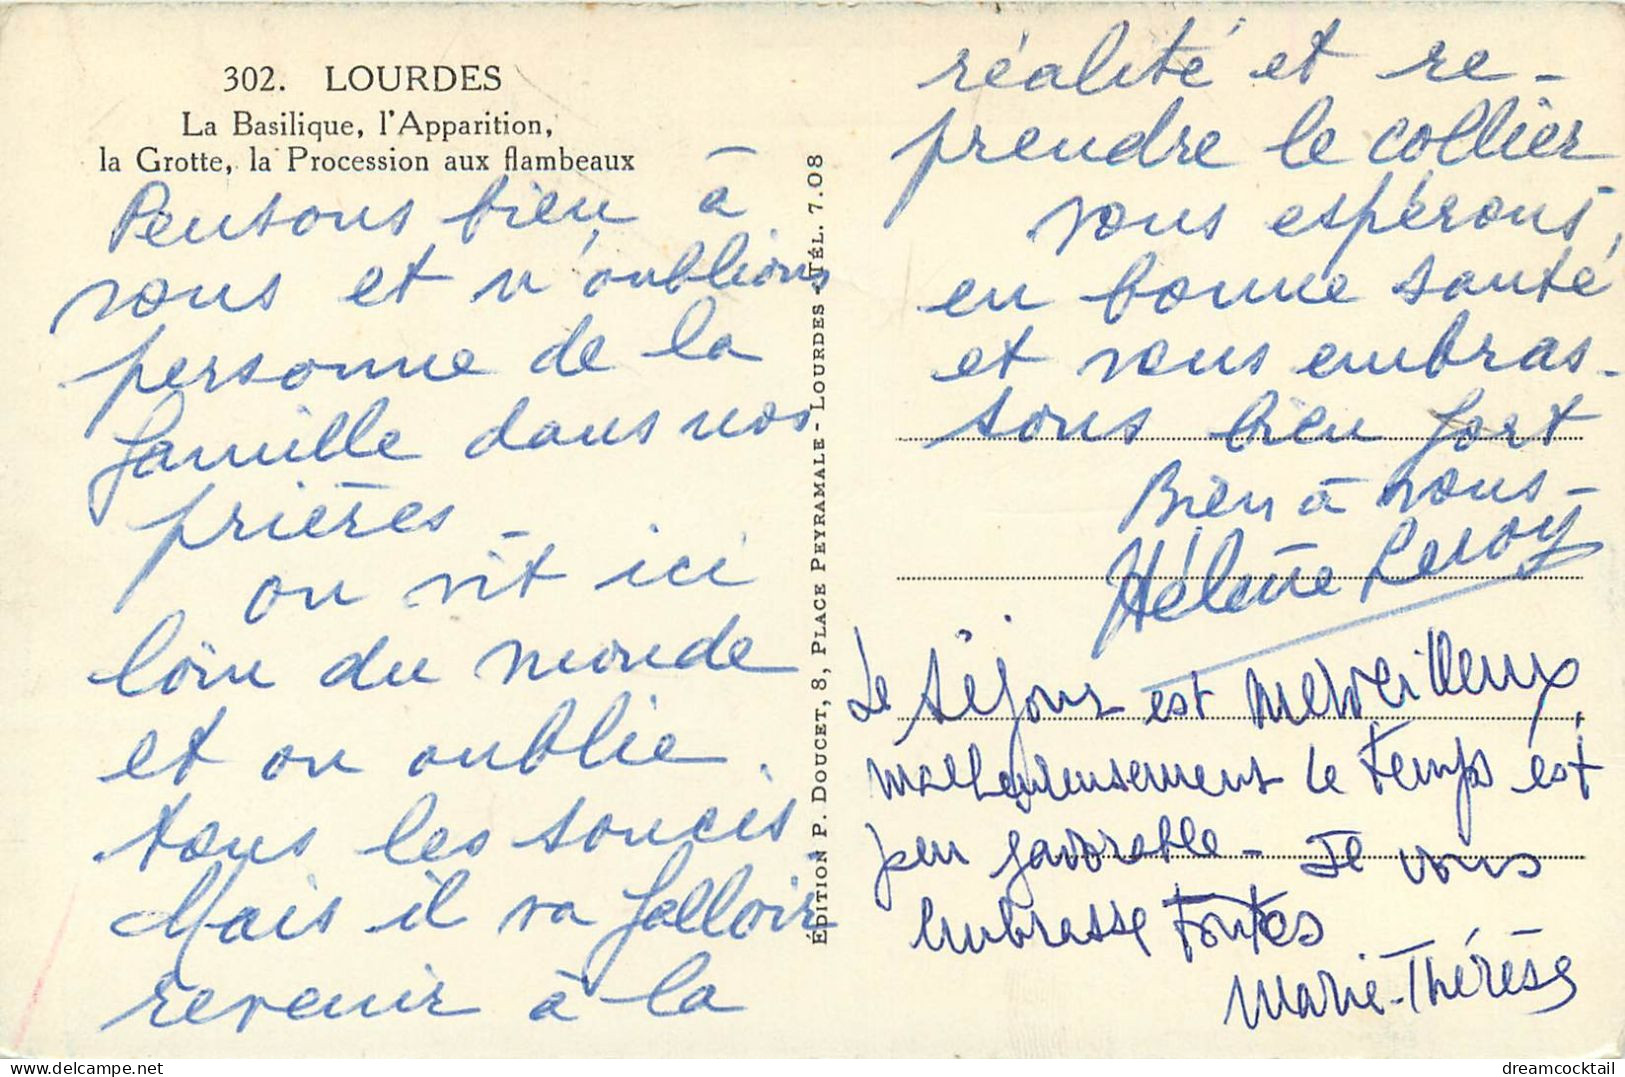 302. LOURDES
La Basilique, l'Apparition,
la Grotte, la Procession aux flambeaux
Pensons bien à
vous et n'oublions
personne de la
famille dans nos
prières -
on vit ici
loin du monde
et on oublie
tous les soucis
Mais il va falloir
revenir à la
ÉDITION P. DOUCET, 8, PLACE PEYRAMALE - LOURDES - TÉL. 7.08
réalité et re-
prendre le collier
vous espérons,
en bonne santé
et vous embras-
sons bien fort
Bien à vous -
Hélène Leroy
Le séjour est merveilleux,
malheureusement le temps est
peu favorable - Je vous
embrasse toutes
Marie-Thérèse
delcampe.net
dreamcocktail